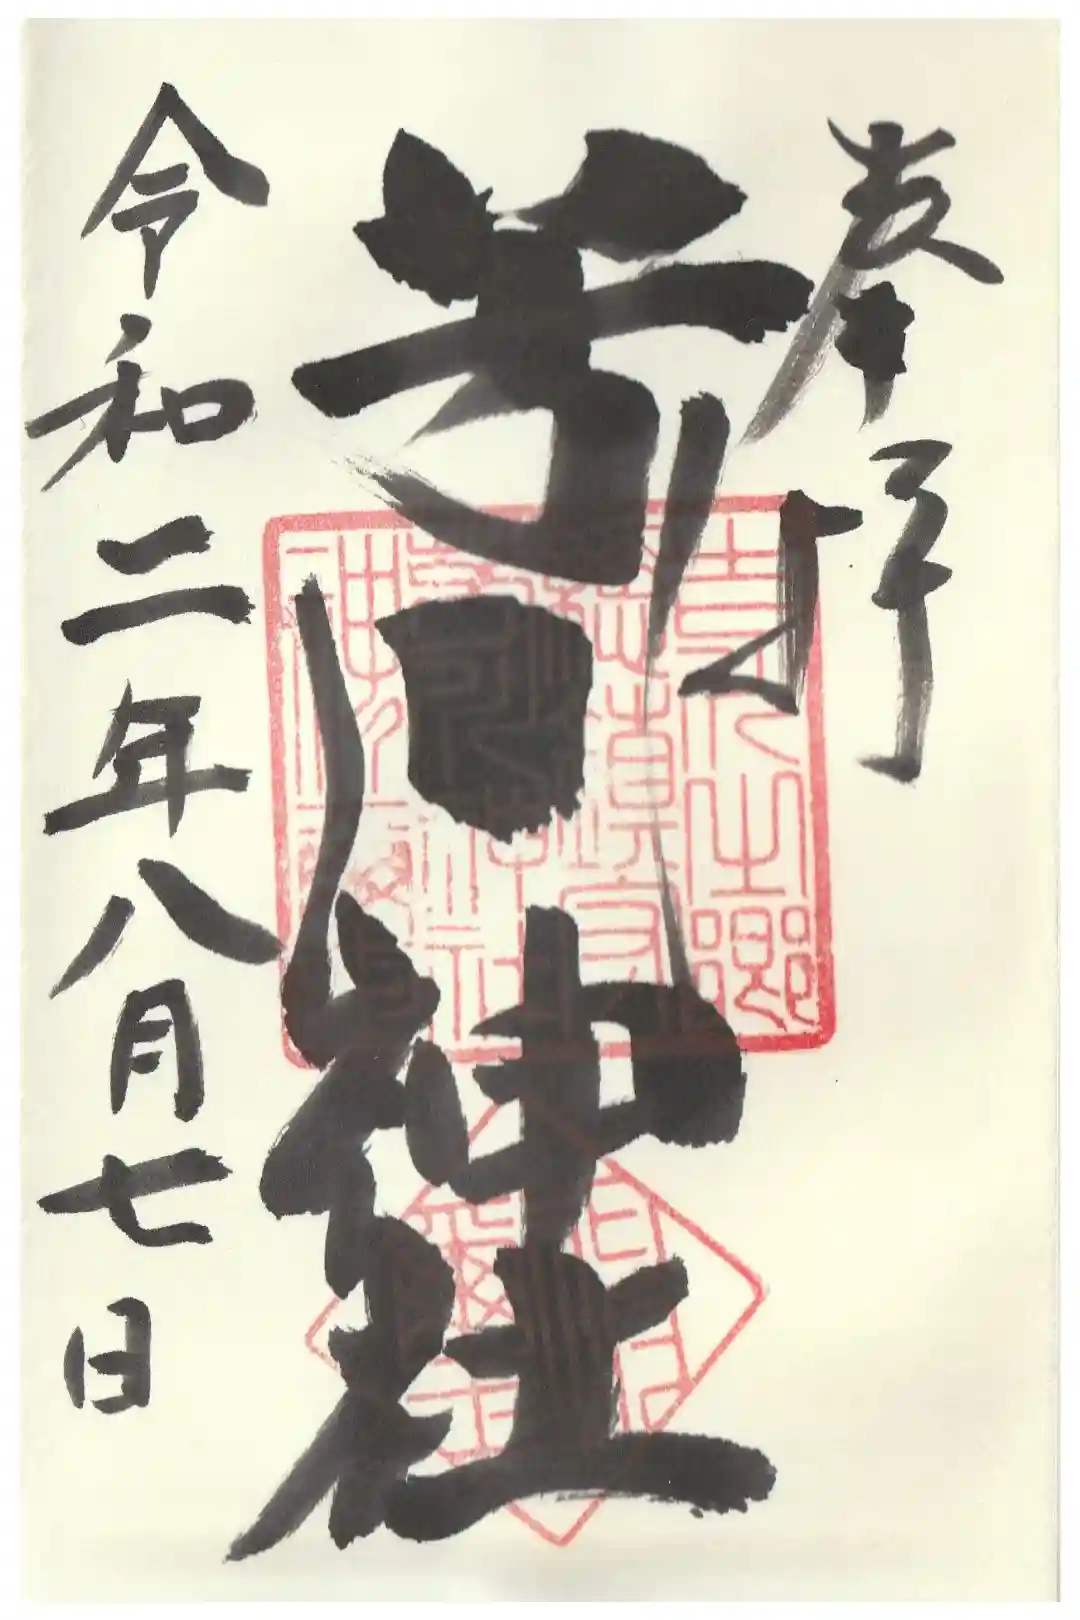 奉拝
芳川神社
令和二年八月七日